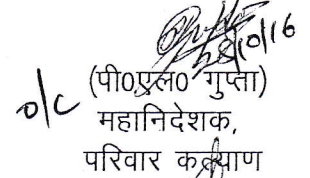 28/10/16
o/c (पी0एल0 गुप्ता)
महानिदेशक,
परिवार कल्याण